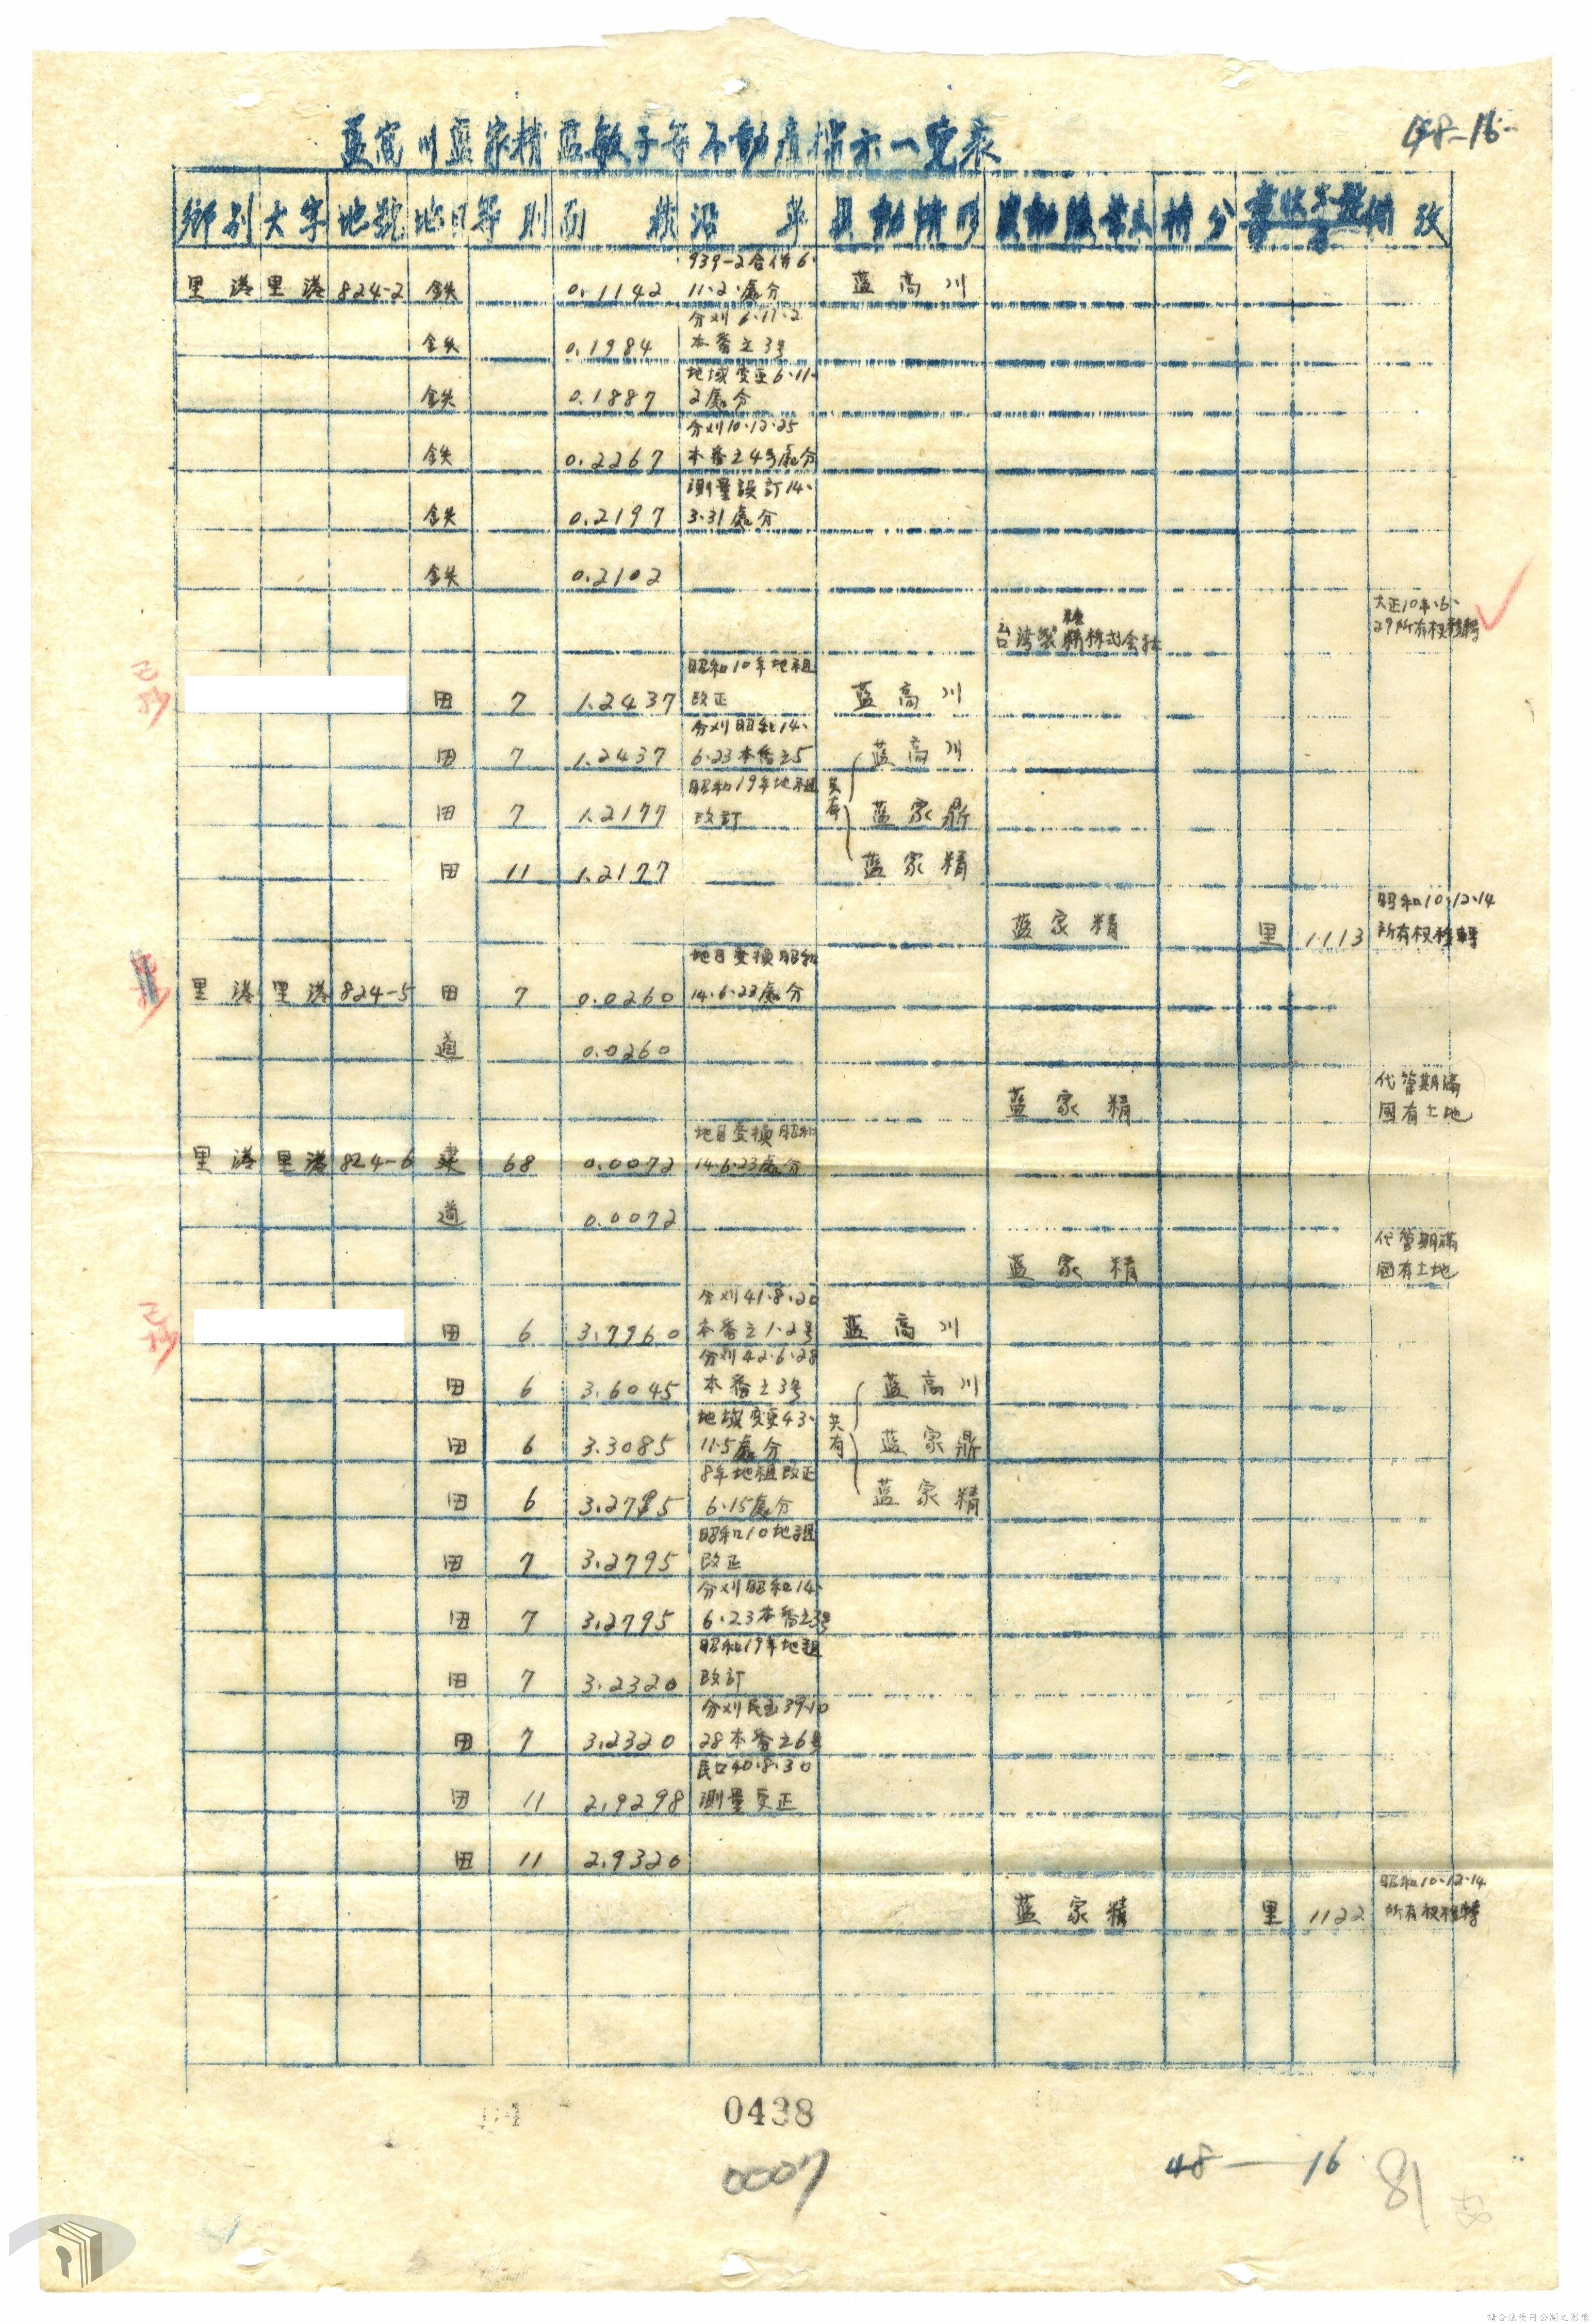 48-16
藍高川藍家精藍敏子等不動產標示一覽表
鄉別 大字 地號 地目 等則 面積 沿革 異動情形 備攷
939-2合併6.
里港 里港 824-2 鉄 0.1142 11.2.處分 藍高川
分刈6.11.2
鉄 0.1984 本番之3号
地域変更6.11.
鉄 0.1887 2處分
分刈10.12.25
鉄 0.2267 本番之4号處分
測量誤訂14.
鉄 0.2197 3.31處分
鉄 0.2102
大正10年.6.
台湾製糖株式会社 29所有权移轉
昭和10年地租
已抄 田 7 1.2437 改正 藍高川
分刈昭和14.
田 7 1.2437 6.23本番之5 藍高川
昭和19年地租 共有
田 7 1.2177 改訂 藍家鼎
田 11 1.2177 藍家精
昭和10.12.14
藍家精 里 1113 所有权移轉
地目变換昭和
里港 里港 824-5 田 7 0.0260 14.6.23處分
道 0.0260
代管期滿
藍家精 國有土地
地目变換昭和
里港 里港 824-6 建 68 0.0072 14.6.23處分
道 0.0072
代管期滿
藍家精 國有土地
分刈41.8.20
已抄 田 6 3.7960 本番之1.2号 藍高川
分刈42.6.28
田 6 3.6045 本番之3号 藍高川
地域変更43. 共有
田 6 3.3085 11.5處分 藍家鼎
8年地租改正
田 6 3.2795 6.15處分 藍家精
昭和10地租
田 7 3.2795 改正
分刈昭和14.
田 7 3.2795 6.23本番之3号
昭和19年地租
田 7 3.2320 改訂
分刈民国39.10
田 7 3.2320 28本番之6号
民口40.8.30
田 11 2.9298 測量更正
田 11 2.9320
昭和10.12.14
藍家精 里 1122 所有权移轉
0438
0007
48—16
81
請合法使用公開之影像